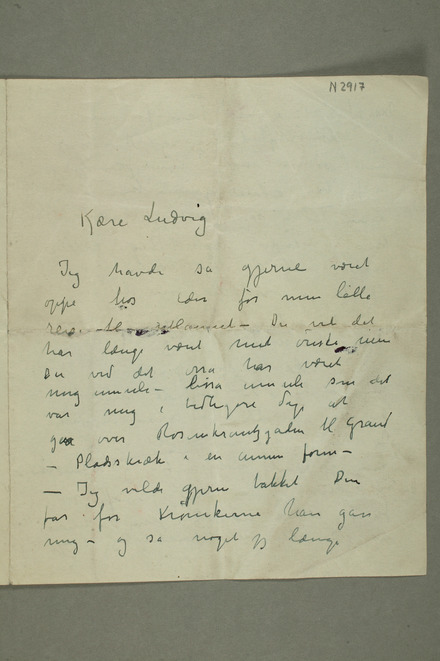 N 2917
Kære Ludvig
Jeg havde så gjerne været
oppe hos eder før min lille
reise til udlandet – Du ved det
har længe været mit ønske men
Du ved det har været
mig umuli – lissa umuli som det
var mig i tidligere dage at
gaa over Rosenkrantzgaden til Grand
– Pladsskræk i en annen form –
– Jeg vilde gjerne takket Din
far for Krønikerne han gav
mig – og så noget jeg længe